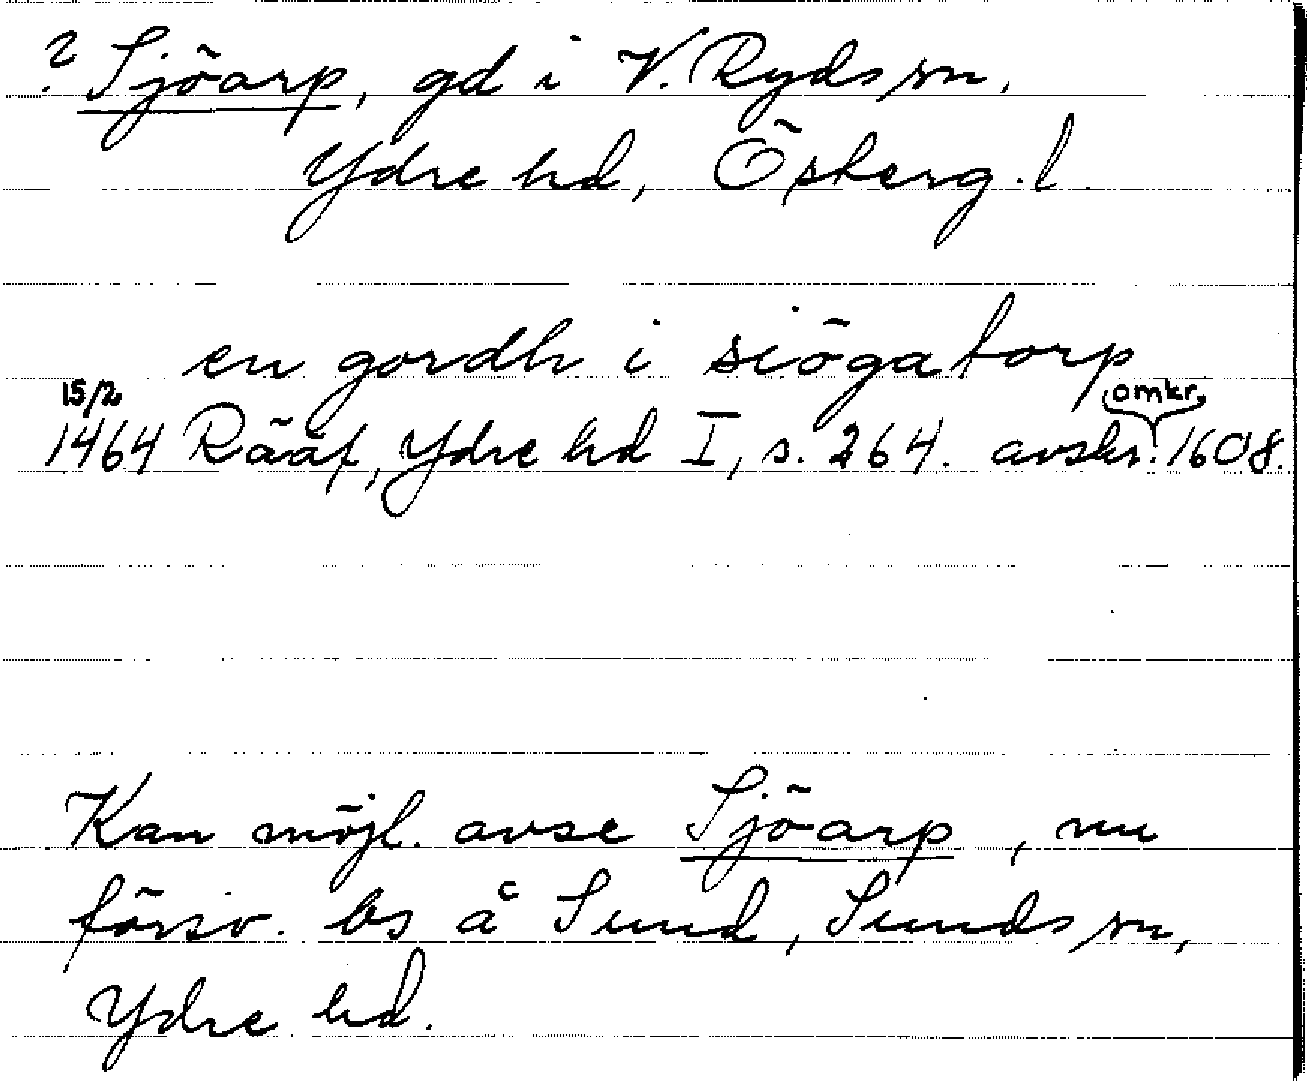 ? Sjöarp, gd i V. Ryds sn,
Ydre hd, Österg. l.
en gordh i siögatorp
15/2
omkr.
1464 Rääf, Ydre hd I, s. 264. avskr. 1608.
Kan möjl. avse Sjöarp, nu
försv. bs å Sund, Sunds sn,
Ydre hd.